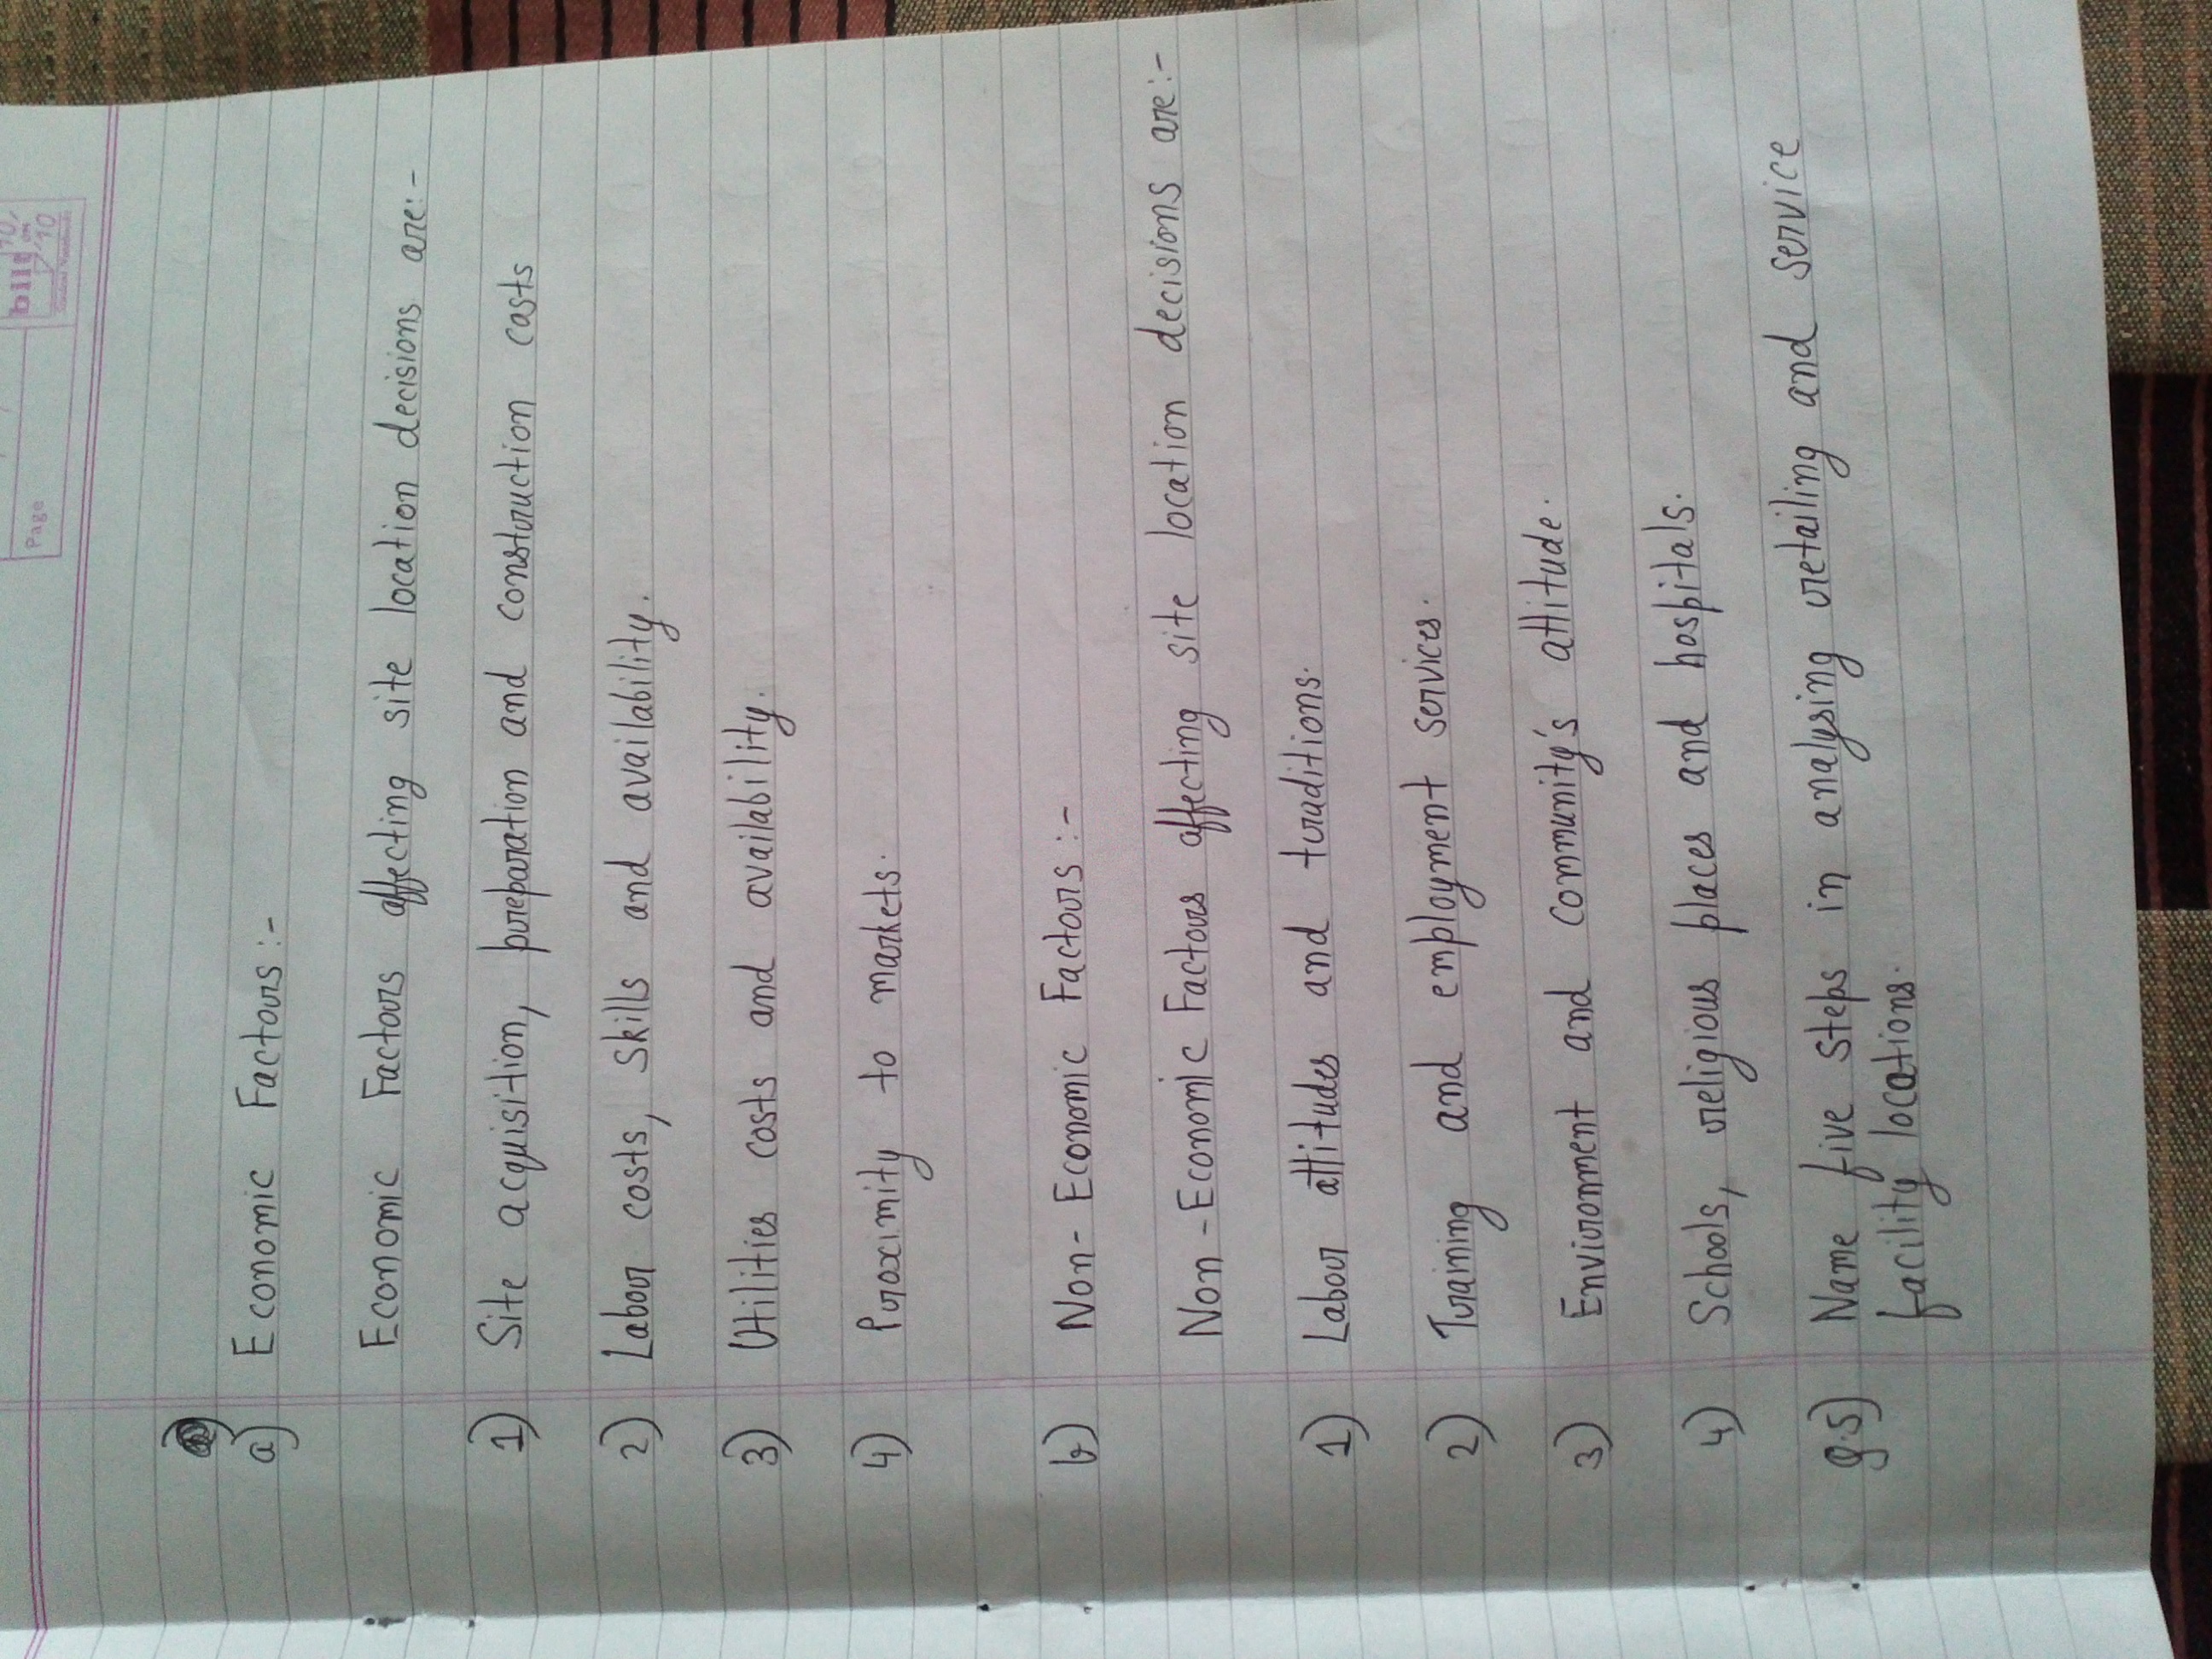 Page
bilt
a) Economic Factors :-
Economic Factors affecting site location decisions are:-
1) Site acquisition, preparation and construction costs
2) Labour costs, skills and availability.
3) Utilities costs and availability.
4) Proximity to markets.
b) Non-Economic Factors :-
Non-Economic Factors affecting site location decisions are:-
1) Labour attitudes and traditions.
2) Training and employment services.
3) Environment and community's attitude.
4) Schools, religious places and hospitals.
Q.5) Name five steps in analysing retailing and service
facility locations.